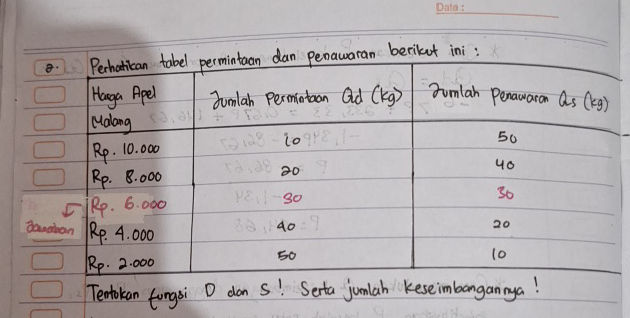 Date :
2. Perhatikan tabel permintaan dan penawaran berikut ini :
Harga Apel Malang | Jumlah Permintaan Qd (kg) | Jumlah Penawaran Qs (kg)
Rp. 10.000 | 10 | 50
Rp. 8.000 | 20 | 40
Jawaban Rp. 6.000 | 30 | 30
Rp. 4.000 | 40 | 20
Rp. 2.000 | 50 | 10
Tentukan fungsi D dan S! Serta jumlah keseimbangannya!